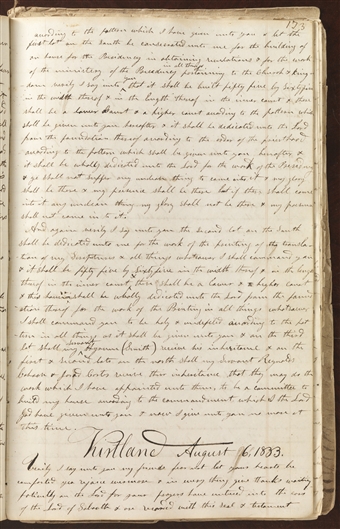 173
according to the pattern which I have given unto you & let the
first lot on the south be consecrated unto me for the building of
an house for the Presidency in obtaining revelations & for the work
of the ministery of the Presidency in all things pertaining to the Church & King
dom verily I say unto you that it shall be built fifty five by sixtyfive
in the width thereof & in the length thereof in the inner court & there
shall be a lower court & a higher court according to the pattern which
shall be given unto you hereafter & it shall be dedicated unto the Lord
from the foundation thereof according to the order of the priesthood
according to the pattern which shall be given unto you hereafter &
it shall be wholly dedicated unto the Lord for the work of the Presidency
& ye shall not suffer any unclean thing to come into it & my glory
shall be there & my presence shall be there but if there shall come
into it any unclean thing my glory shall not be there & my presence
shall not come in to it.
And again verily I say unto you the second lot on the South
shall be dedicated unto me for the work of the printing of the translation
of my Scriptures & all things whatsoever I shall command you
& it shall be fifty five by sixtyfive in the width thereof & in the length
thereof in the inner court & there shall be a lower & a higher court
& this house shall be wholly dedicated unto the Lord from the foundation
thereof for the work of the Printing in all things whatsoever
I shall command you to be holy & undefiled according to the pattern
in all things as it shall be given unto you & on the third
lot shall my servant Hyrum (Smith) receive his inheritance & on the
first & second lots on the north shall my Servant Reynolds
Cahoon & Jared Carter receive their inheritance that they may do the
work which I have appointed unto them to be a committee to
build my houses according to the commandment which I the Lord
God have given unto you & now I give unto you no more at
this time.
Kirtland August 6, 1833.
Verily I say unto you my friends fear not let your hearts be
comforted yea rejoice evermore & in every thing give thanks waiting
patiently on the Lord for your prayers have entered into the ears
of the Lord of Sabaoth & are recorded with this seal & testament